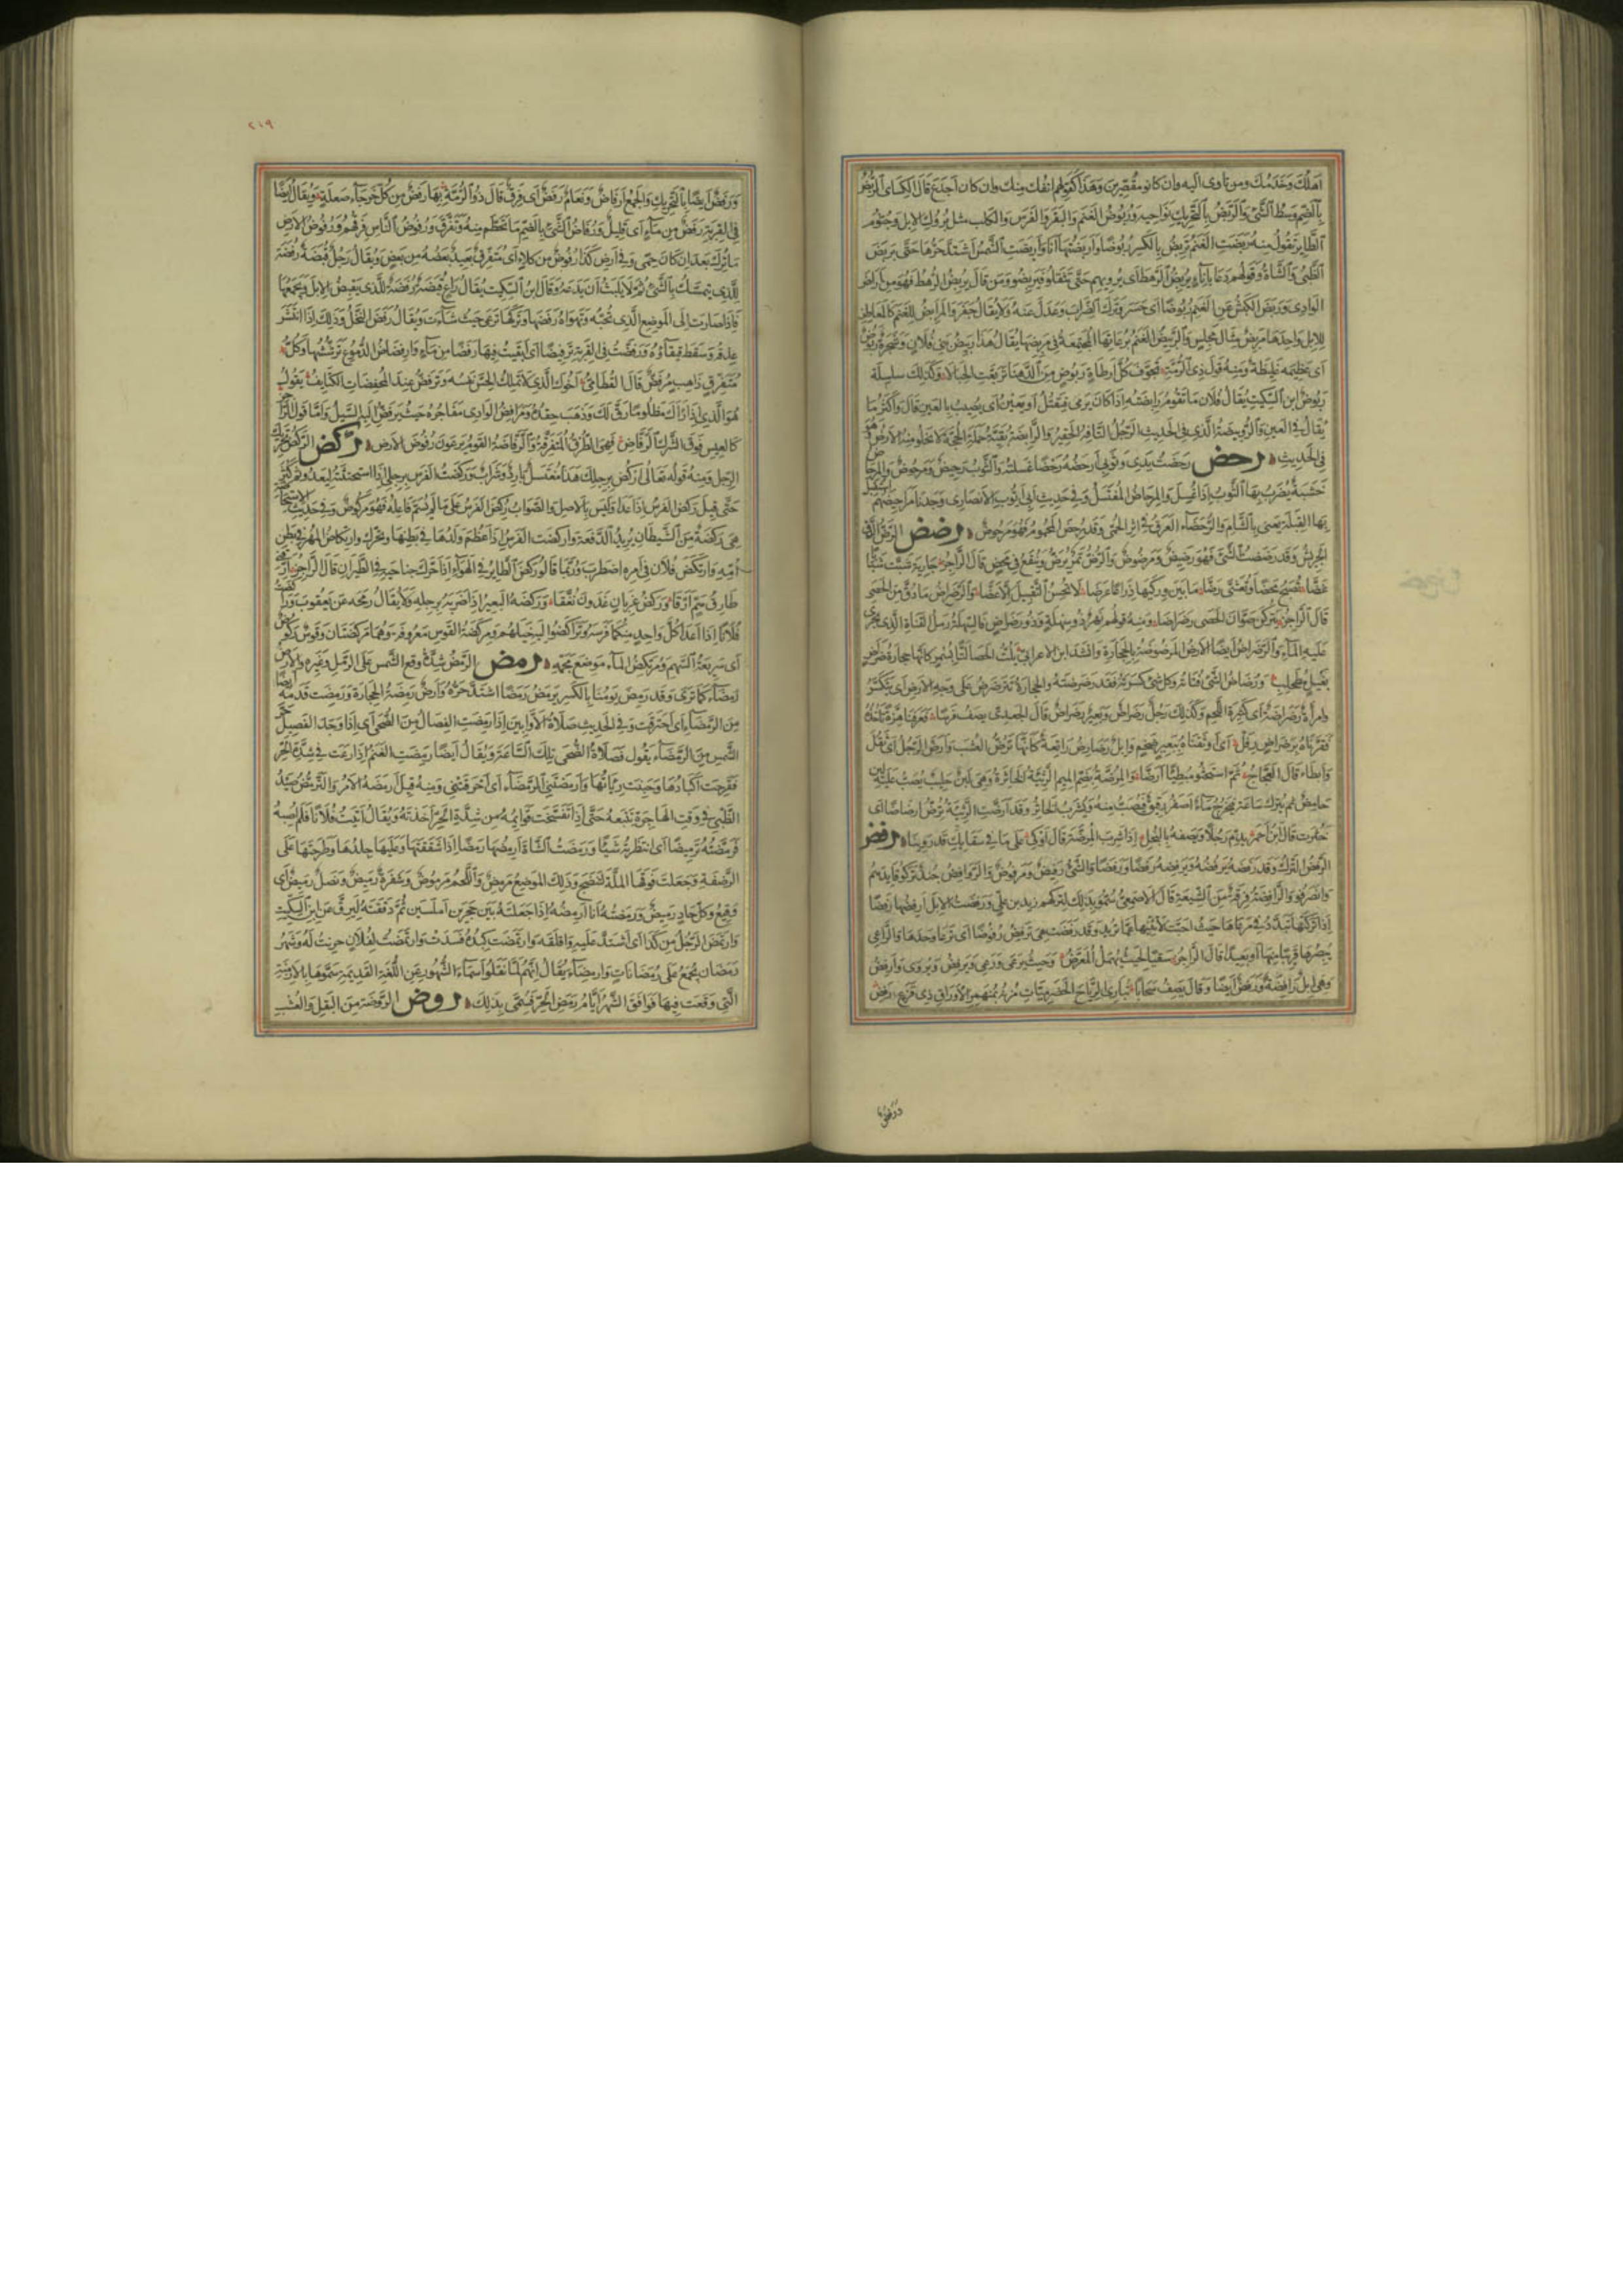 اَهلُكَ وَخَدَمُكَ ومن تأوى اليه وان كانوا مقصّرين وَهَذا كقولهم انفك منك وان كان اجدع قال الكسائى الرُّبْضُ
بالضمّ وسط الشئ والرَّبَضُ بالتحريك نواحيه ورُبُوضُ الغنم والبقر والفرس والكلب مثل بُروك الابل وجُثوم
الطاير تقول منه رَبَضَتِ الغنمُ تَرْبِضُ بالكسر رُبُوضًا واَرْبَضْتُها اَنا واَربضَتِ الشمسُ اشتدّ حَرُّها حتى يربض
الظبى والشاة وقولهم دعا بإناءٍ يُربِضُ الرَّهطَ اى يرويهم حتى يثقلوا فيربضوا ومن قال يُريضُ الرهط فهو من اَراض
الوادى ورَبَضَ الكبشُ عن الغنم رُبوضًا اى حسر وترك الضراب وعدل عنه ولا يقال جفر والمرابض للغنم كالمعاطن
للابل واحدها مَربِض مثال مجلس والرَّبيضُ الغنمُ برعاتها المجتمعة فى مربضها يقال هذا ربيض بنى فلان وشجرة رَبُوضٌ
اى عظيمة غليظة ومنه قول ذى الرّمّة تجوّف كلّ ارطاة ربوض من الدهنا تربّعت الحبالا وكذلك سلسلة
ربوض ابن السكيت يقال فلان ما تقوم رابضته اذا كان يرمى فيقتل او يعين اى يصيب بالعين قال واكثر ما
يقال فى العين والرويبضة الذى فى الحديث الرجل التافه الحقير والرابضة بقيّة حملة الحجّة لا تخلو منهم الارض وهو
فى الحديث رحض رحضت يدى وثوبى ارحضه رحضا غسلته والثوب رحيض ومرحوض والمرحاض
خشبة يضرب بها الثوب اذا غسل والمرحاض المغتسل وفى حديث ابى ايوب الانصارى وجدنا مراحيضهم استقبل
بها القبلة يعنى بالشام والرحضاء العرق فى اثر الحمى وقد رحض المحموم فهو مرحوض رضض الرضّ الدقّ
الجريش وقد رضضت الشئ فهو رضيض ومرضوض والرضّ تمر يرضّ وينقع فى محض قال الراجز جارية شبّت شبابا
غضّا تصبح محضا وتعشّى رضّا ما بين وركيها ذراعا عرضا لا تحسن التقبيل الا عضّا والرضراض ما دقّ من الحصى
قال الراجز يتركن صوّان الحصى رضراضا ومنه قولهم نهر ذو سهلة وذو رضراض فالسهلة رمل القناة الذى يجرى
عليه الماء والرضراض ايضا الارض المرضوضة بالحجارة وانشد ابن الاعرابى يلتّ الحصا لتّا بسمر كانها حجارة رضراض
بغيل مطحلب ورضاض الشئ فتاته وكل شئ كسرته فقد رضرضته والحجارة تترضرض على وجه الارض اى تتكسّر
وامرأة رضراضة اى كثيرة اللحم وكذلك رجل رضراض وبعير رضراض قال الجعدى يصف فرسا فعرفنا هزّة تاخذه
فقرنّاه برضراض رفل اى اوثقناه ببعير ضخم وابل رضارض راتعة كانها ترضّ العشب وارضّ الرجل اى ثقل
وابطاء قال العجاج ثم استحثّوا مبطئا ارضّا والمرضّة بضم الميم الرثيئة الخاثرة وهى لبن حليب يصب عليه لبن
حامض ثم يترك ساعة فيخرج ماء اصفر رقيق فيصبّ منه ويشرب الخاثر وقد ارضّت الرثيئة ترضّ ارضاضا اى
خثرت قال ابن احمر يذمّ رجلا ويصفه بالبخل اذا شرب المرضّة قال اوكى على ما فى سقايك قد روينا رفض
الرفض الترك وقد رفضه يرفضه ويرفضه رفضا ورفضا والشئ رفيض ومرفوض والروافض جند تركوا قايدهم
وانصرفوا والرافضة فرقة من الشيعة قال الاصمعى سمّوا بذلك لتركهم زيد بن على ورفضت الابل ارفضها رفضا
اذا تركتها تبدّد فى مرعاها حيث احبّت لا تثنيها عمّا تريد وقد رفضت هى ترفض رفوضا اى ترعا وحدها والراعى
يبصرها قريبا منها او بعيدا قال الراجز سقيا لحيث يهمل المعرّض وحيث يرعى ورعى ويرفض ويروى وارفض
وهى ابل رافضة ورفض ايضا وقال يصف سحابا تبارى الرياح الحضرميات مزنه بمنهمر الاوراق ذى قزع رفض
ورفض
٢١٩
ورَفَض ايضا بالتحريك والجمع ارفاض ونعام رَفَض اى فِرَق قال ذو الرّمّة بها رفض من كل خرجاء صعلة ويقال ايضا
فى القربة رفض من ماء اى قليل ورفاض الشئ بالضم ما تحطّم منه وتفرّق ورفوض الناس فرقهم ورفوض الارض
ما ترك بعد ان كان حمى وفى ارض كذا رفوض من كلاء اى متفرق بعيد بعضه من بعض ويقال رجل قبضة رفضة
للذى يتمسّك بالشئ ثم لا يلبث ان يدعه وقال ابن السكيت يقال راع قبضة رفضة للذى يقبض الابل ويجمعها
فاذا صارت الى الموضع الذى تحبّه وتهواه رفضها وتركها ترعى حيث شاءت ويقال رفض النخل وذلك اذا انتشر
عذقه وسقط قيقاؤه ورفّضت فى القربة ترفيضا اى ابقيت فيها رفضا من ماء وارفضاض الدموع ترشّشها وكل
متفرّق ذاهب مرفضّ قال القطامى اخوك الذى لا تملك الحسّ نفسه وترفضّ عند المحفظات الكتايف يقول
هو الذى اذا راك مظلوما رقّ لك وذهب حقده ومرافض الوادى مفاجره حيث يرفضّ اليه السيل وامّا قول الراجز
كالعيس فوق الشرك الرفاض فهى الطرق المتفرقة والرفاضة القوم يرعون رفوض الارض ركض الركض تحريك
الرجل ومنه قوله تعالى اركض برجلك هذا مغتسل بارد وشراب وركضت الفرس برجلى اذا استحثثته ليعدو ثم كثر
حتى قيل ركض الفرس اذا عدا وليس بالاصل والصواب ركض الفرس على ما لم يسمّ فاعله فهو مركوض وفى حديث الاستحاضة
هى ركضة من الشيطان يريد الدفعة واركضت الفرس اذا عظم ولدها فى بطنها وتحرّك وارتكاض المهر فى بطن
امّه وارتكض فلان فى امره اضطرب وربّما قالوا ركض الطاير فى الهواء اذا حرّك جناحيه فى الطيران قال الراجز ارّقنى
طارق همّ ارقا وركض غربان غدون نعّقا وركضه البعير اذا ضربه برجله ولا يقال رمحه عن يعقوب وراكضت
فلانا اذا اعدا كل واحد منكما فرسه وتراكضوا اليه خيلهم ومركضة القوس معروفة وهما مركضتان وقوس ركوض
اى سريعة السهم ومرتكض الماء موضع مجمّه رمض الرمض شدّة وقع الشمس على الرمل وغيره والارض
رمضاء كما ترى وقد رمض يومنا بالكسر يرمض رمضا اشتدّ حرّه وارض رمضة الحجارة ورمضت قدمه ايضا
من الرمضاء اى احترقت وفى الحديث صلاة الاوّابين اذا رمضت الفصال من الضحى اى اذا وجد الفصيل حرّ
الشمس من الرمضاء يقول فصلاة الضحى تلك الساعة ويقال ايضا رمضت الغنم اذا رعت فى شدّة الحرّ
فقرحت اكبادها وحبنت رياتها وارمضتنى الرمضاء اى احرقتنى ومنه قيل رمضه الامر والترمّض صيد
الظبى فى وقت الهاجرة تتبعه حتى اذا تفسّخت قوايمه من شدّة الحرّ اخذته ويقال اتيت فلانا فلم اصبه
فرمّضته ترميضا اى انتظرته شيئا ورمضت الشاة ارمضها رمضا اذا شققتها وعليها جلدها وطرحتها على
الرضفة وجعلت فوقها الملّة لتنضج وذلك الموضع مرمض واللحم مرموض وشفرة رميض ونصل رميض اى
وقيع وكل حاد رميض ورمضته انا ارمضه اذا جعلته بين حجرين املسين ثم دققته ليرقّ عن ابن السكيت
وارتمض الرجل من كذا اى اشتدّ عليه واقلقه وارتمضت كبده فسدت وارتمضت لفلان حزنت له وشهر
رمضان يجمع على رمضانات وارمضاء يقال انهم لمّا نقلوا اسماء الشهور عن اللغة القديمة سمّوها بالازمنة
التى وقعت فيها فوافق الشهر ايّام رمض الحرّ فسمّى بذلك روض الروضة من البقل والعشب